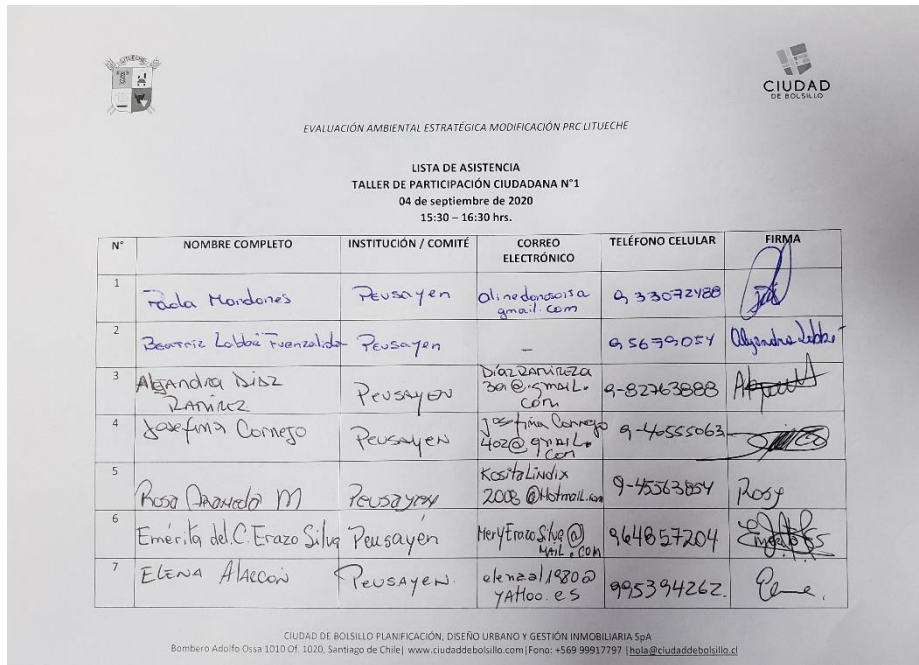 LITUECHE
CIUDAD
DE BOLSILLO
EVALUACIÓN AMBIENTAL ESTRATÉGICA MODIFICACIÓN PRC LITUECHE
LISTA DE ASISTENCIA
TALLER DE PARTICIPACIÓN CIUDADANA N°1
04 de septiembre de 2020
15:30 – 16:30 hrs.
N° NOMBRE COMPLETO INSTITUCIÓN / COMITÉ CORREO ELECTRÓNICO TELÉFONO CELULAR FIRMA
1 Mondones Peusayen gmail.com 9 33072488
2 Beatriz Labbé Fuenzalida Peusayen – 9 5679054
3 Alejandra Díaz Ramírez Peusayen DíazRamireza 30@gmail.com 9-82763888
4 Josefina Cornejo Peusayen Josefina Cornejo 402@gmail.com 9-46555063
5 Rosa M Peusayen KositaLindix 2008@Hotmail.com 9-45563854 Rosy
6 Emérita del.C. Erazo Silva Peusayén MeryErazoSilva@ Mail.com 964857204
7 Elena Alarcón Peusayen. elenaal1980@ YAHoo.es 995394262.
CIUDAD DE BOLSILLO PLANIFICACIÓN, DISEÑO URBANO Y GESTIÓN INMOBILIARIA SpA
Bombero Adolfo Ossa 1010 Of. 1020, Santiago de Chile| www.ciudaddebolsillo.com|Fono: +569 99917797 |hola@ciudaddebolsillo.cl